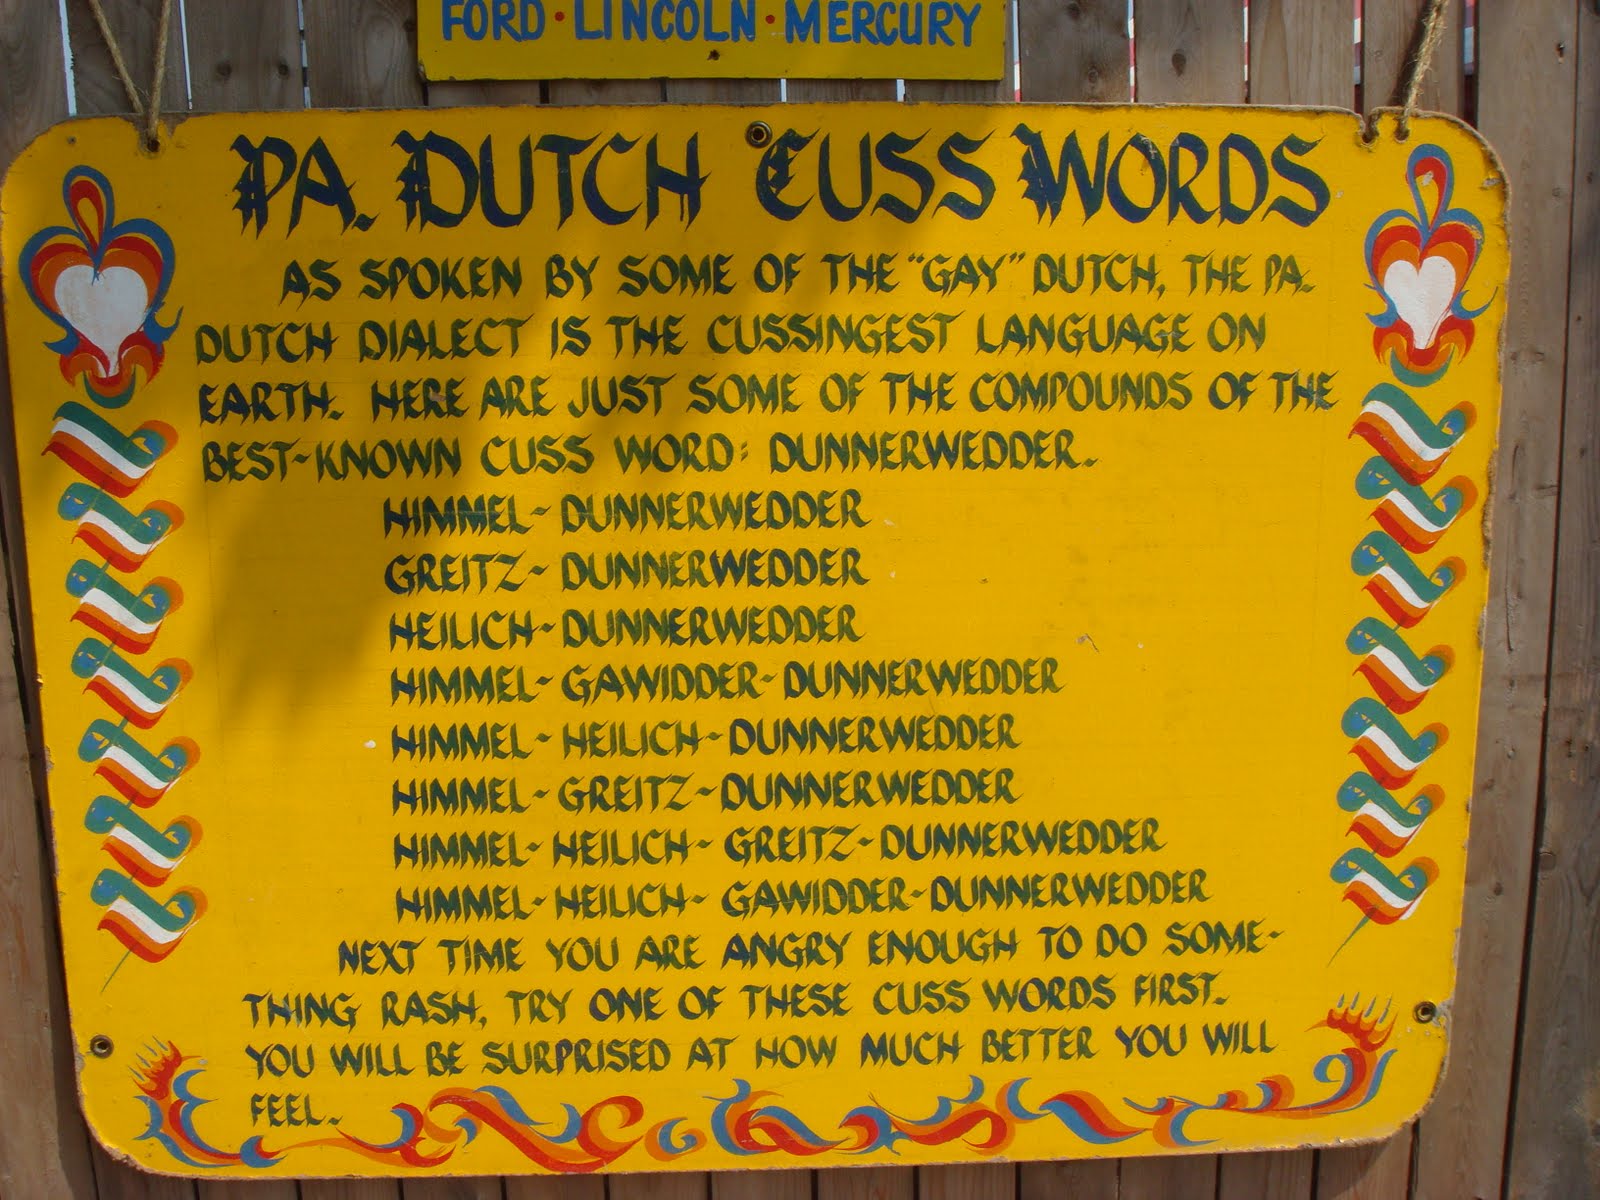 FORD • LINCOLN • MERCURY
PA. DUTCH CUSS WORDS
AS SPOKEN BY SOME OF THE "GAY" DUTCH, THE PA.
DUTCH DIALECT IS THE CUSSINGEST LANGUAGE ON
EARTH. HERE ARE JUST SOME OF THE COMPOUNDS OF THE
BEST-KNOWN CUSS WORD: DUNNERWEDDER.
HIMMEL-DUNNERWEDDER
GREITZ-DUNNERWEDDER
HEILICH-DUNNERWEDDER
HIMMEL-GAWIDDER-DUNNERWEDDER
HIMMEL-HEILICH-DUNNERWEDDER
HIMMEL-GREITZ-DUNNERWEDDER
HIMMEL-HEILICH-GREITZ-DUNNERWEDDER
HIMMEL-HEILICH-GAWIDDER-DUNNERWEDDER
NEXT TIME YOU ARE ANGRY ENOUGH TO DO SOME-
THING RASH, TRY ONE OF THESE CUSS WORDS FIRST.
YOU WILL BE SURPRISED AT HOW MUCH BETTER YOU WILL
FEEL.